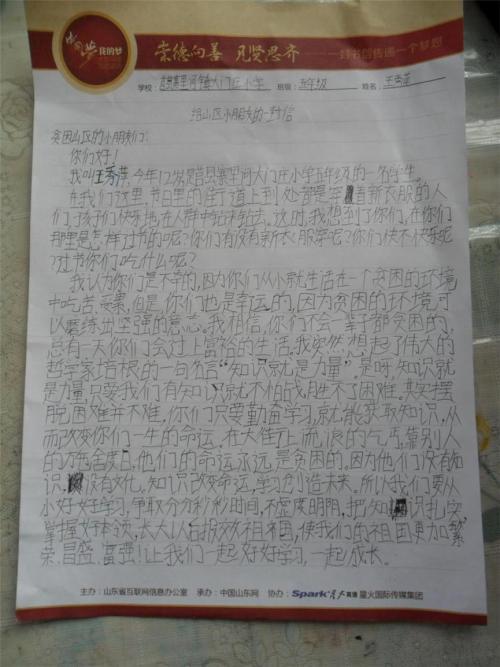 中国梦 我的梦
崇德向善 见贤思齐 ——一封书信传递一个梦想
学校: 莒县寨里河镇大门庄小学 班级: 五年级 姓名: 王秀萍
给山区小朋友的一封信
贫困山区的小朋友们:
你们好!
我叫王秀萍,今年12岁是莒县寨里河大门庄小学五年级的一名学生。
在我们这里,节日里的街道上到处都是穿着新衣服的人
们,孩子们快乐地在人群中钻来钻去。这时,我想到了你们,在你们
那里是怎样过节的呢?你们有没有新衣服穿呢?你们快不快乐呢
?过节你们吃什么呢?
我认为你们是不幸的,因为你们从小就生活在一个贫困的环境
中吃苦、受累,但是你们也是幸运的,因为贫困的环境可
以磨练出坚强的意志。我相信,你们不会一辈子都贫困的,
总有一天你们会过上富裕的生活。我突然想起了伟大的
哲学家培根的一句名言“知识就是力量”。是呀,知识就
是力量,只要我们有知识就不怕战胜不了困难。其实摆
脱困难并不难,你们只要勤奋学习,就能获取知识,从
而改变你们一生的命运。在大街上流浪的乞丐,靠别人
的钱度日,他们的命运永远是贫困的。因为他们没有知
识,没有文化,知识改变命运,学习创造未来。所以我们要从
小好好学习,争取分分秒秒时间,不虚度光阴,把知识扎实
掌握好本领,长大以后报效祖国,使我们的祖国更加繁
荣、昌盛、富强!让我们一起好好学习,一起成长。
主办:山东省互联网信息办公室 承办:中国山东网 协办:Spark 星火英语 星火国际传媒集团